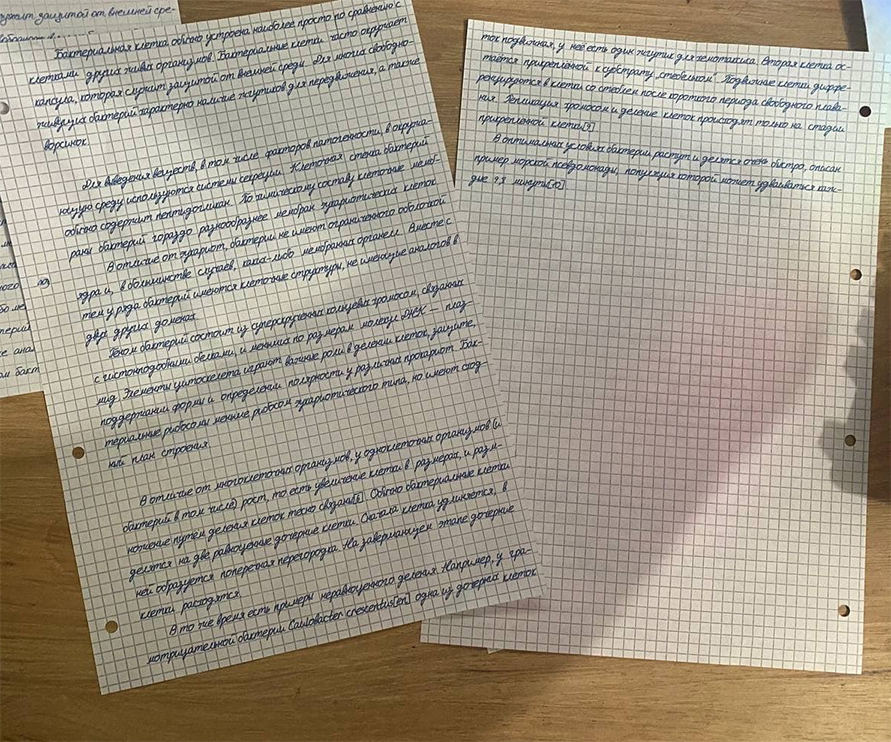 ружит защитой от внешней сре-
Бактериальная клетка обычно устроена наиболее просто по сравнению с
клетками других живых организмов. Бактериальные клетки часто окружает
капсула, которая служит защитой от внешней среды. Для многих свободно-
живущих бактерий характерно наличие жгутиков для передвижения, а также
ворсинок.
Для выведения веществ, в том числе факторов патогенности, в окружа-
ющую среду используются системы секреции. Клеточная стенка бактерий
обычно содержит пептидогликан. По химическому составу клеточные мемб-
раны бактерий гораздо разнообразнее мембран эукариотических клеток.
В отличие от эукариот, бактерии не имеют ограниченного оболочкой
ядра и, в большинстве случаев, каких-либо мембранных органелл. Вместе с
тем у ряда бактерий имеются клеточные структуры, не имеющие аналогов в
двух других доменах.
Геном бактерий состоит из суперскрученных кольцевых хромосом, связанных
с гистонподобными белками, и меньших по размерам молекул ДНК — плаз-
мид. Элементы цитоскелета играют важные роли в делении клеток, защите,
поддержании формы и определении полярности у различных прокариот. Бак-
териальные рибосомы меньше рибосом эукариотического типа, но имеют сход-
ный план строения.
В отличие от многоклеточных организмов, у одноклеточных организмов (и
бактерий в том числе) рост, то есть увеличение клетки в размерах, и разм-
ножение путем деления клеток тесно связаны[6]. Обычно бактериальные клетки
делятся на две равноценные дочерние клетки. Сначала клетка удлиняется, в
ней образуется поперечная перегородка. На завершающем этапе дочерние
клетки расходятся.
В то же время есть примеры неравноценного деления. Например, у гра-
мотрицательной бактерии Caulobacter crescentus[en] одна из дочерних клеток
ток подвижная, у неё есть один жгутик для хемотаксиса. Вторая клетка ос-
таётся прикреплённой к субстрату „стебельком". Подвижные клетки диффе-
ренцируются в клетки со стеблем после короткого периода свободного плава-
ния. Репликация хромосом и деление клеток происходят только на стадии
прикреплённой клетки
В оптимальных условиях бактерии растут и делятся очень быстро, описан
пример морской псевдомонады, популяция которой может удваиваться каж-
дые 9,8 минуты[10]